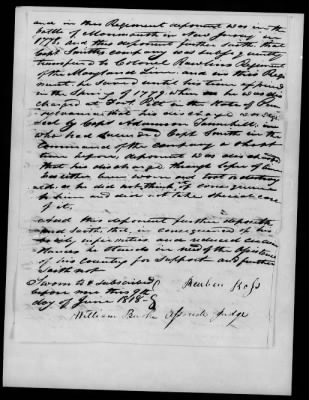 and in this Regiment deponent was in the
battle of Monmouth in New Jersey in
1778, and this deponent further saith that
Capt Smiths company was subsequently
transferred to Colonel Rawlins Regiment
of the Maryland Line and in this Regi
ment he served until his time expired
in the Spring of 1779 when he was dis
charged at Fort Pitt in the State of Pen
sylvania that his discharge was
by Capt Adamson Tannehill
who had succeeded Capt Smith in the
command of the company a short
time before deponent was discharged
that his discharge
has either been worn and lost or destroy
ed, as he did not think it of consequence
to him and did not take special care
of it.
And this deponent further deposeth
and saith that in consequence of his
bodily infirmities and reduced circum
stances he stands in need of the assistance
of his Country for support and further
saith not
Sworn to & subscribed
before me this 9th
day of June 1818
Reuben Ross
William Burke Associate Judge